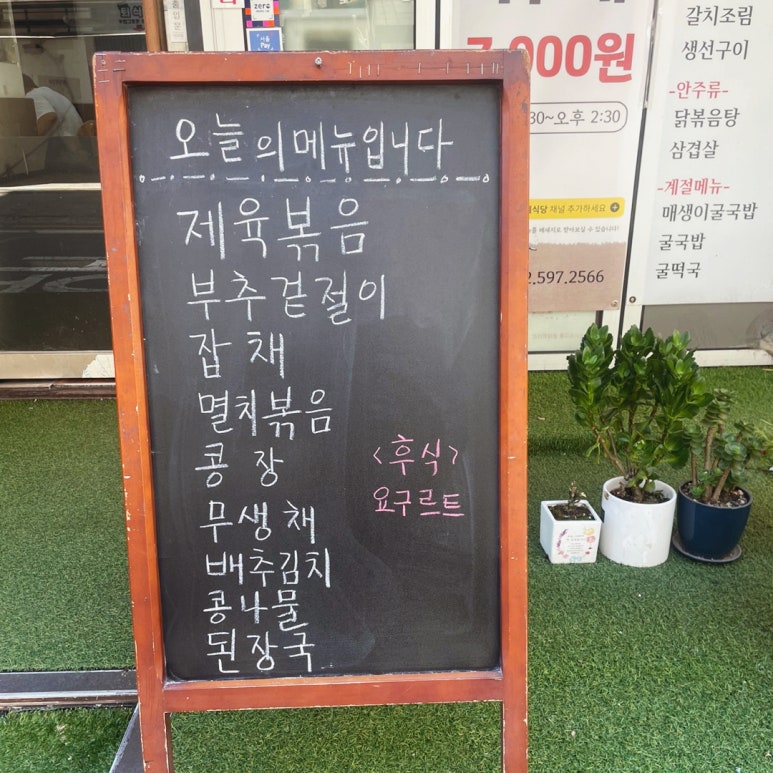 오늘의 메뉴입니다
제육볶음
부추겉절이
잡채
멸치볶음
콩장
무생채
배추김치
콩나물
된장국
<후식>
요구르트
zero
Pay
7,000원
30~오후 2:30
식당 채널 추가하세요
2.597.2566
갈치조림
생선구이
-안주류-
닭볶음탕
삼겹살
-계절메뉴-
매생이굴국밥
굴국밥
굴떡국